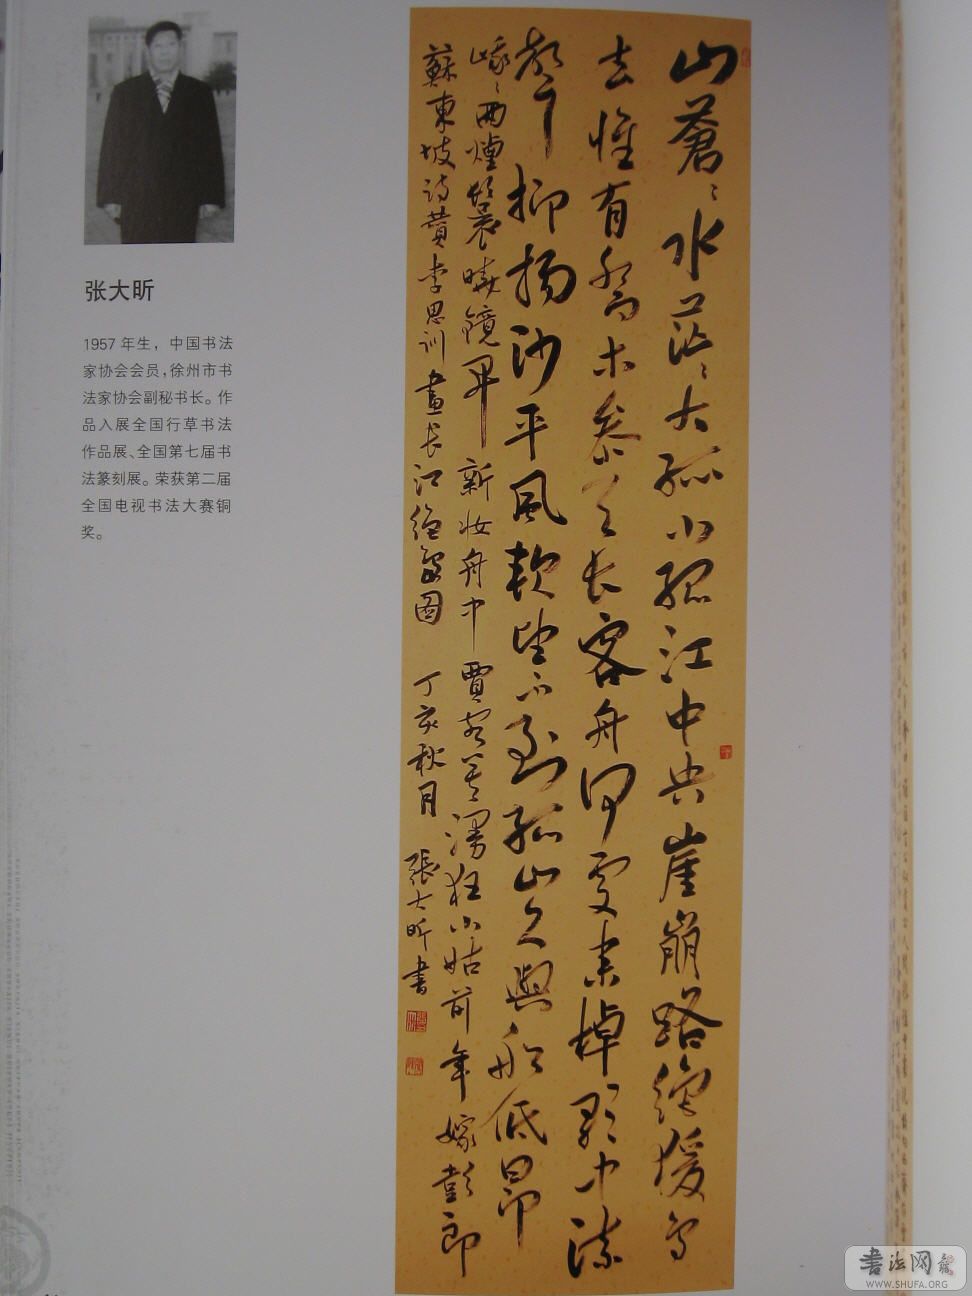 张大昕
1957年生，中国书法
家协会会员，徐州市书
法家协会副秘书长。作
品入展全国行草书法
作品展、全国第七届书
法篆刻展。荣获第二届
全国电视书法大赛铜
奖。
山蒼〻水茫〻大孤小孤江中央崖崩路絕猿鳥
去惟有喬木參天長客舟何處来棹歌中流
聲抑揚沙平風軟望不到孤山久與船低昂
峨〻兩煙鬟曉鏡開新妝舟中賈客莫漫狂小姑前年嫁彭郎
蘇東坡詩贊李思訓畫長江絕島圖 丁亥秋月 張大昕書
書法网
WWW.SHUFA.ORG